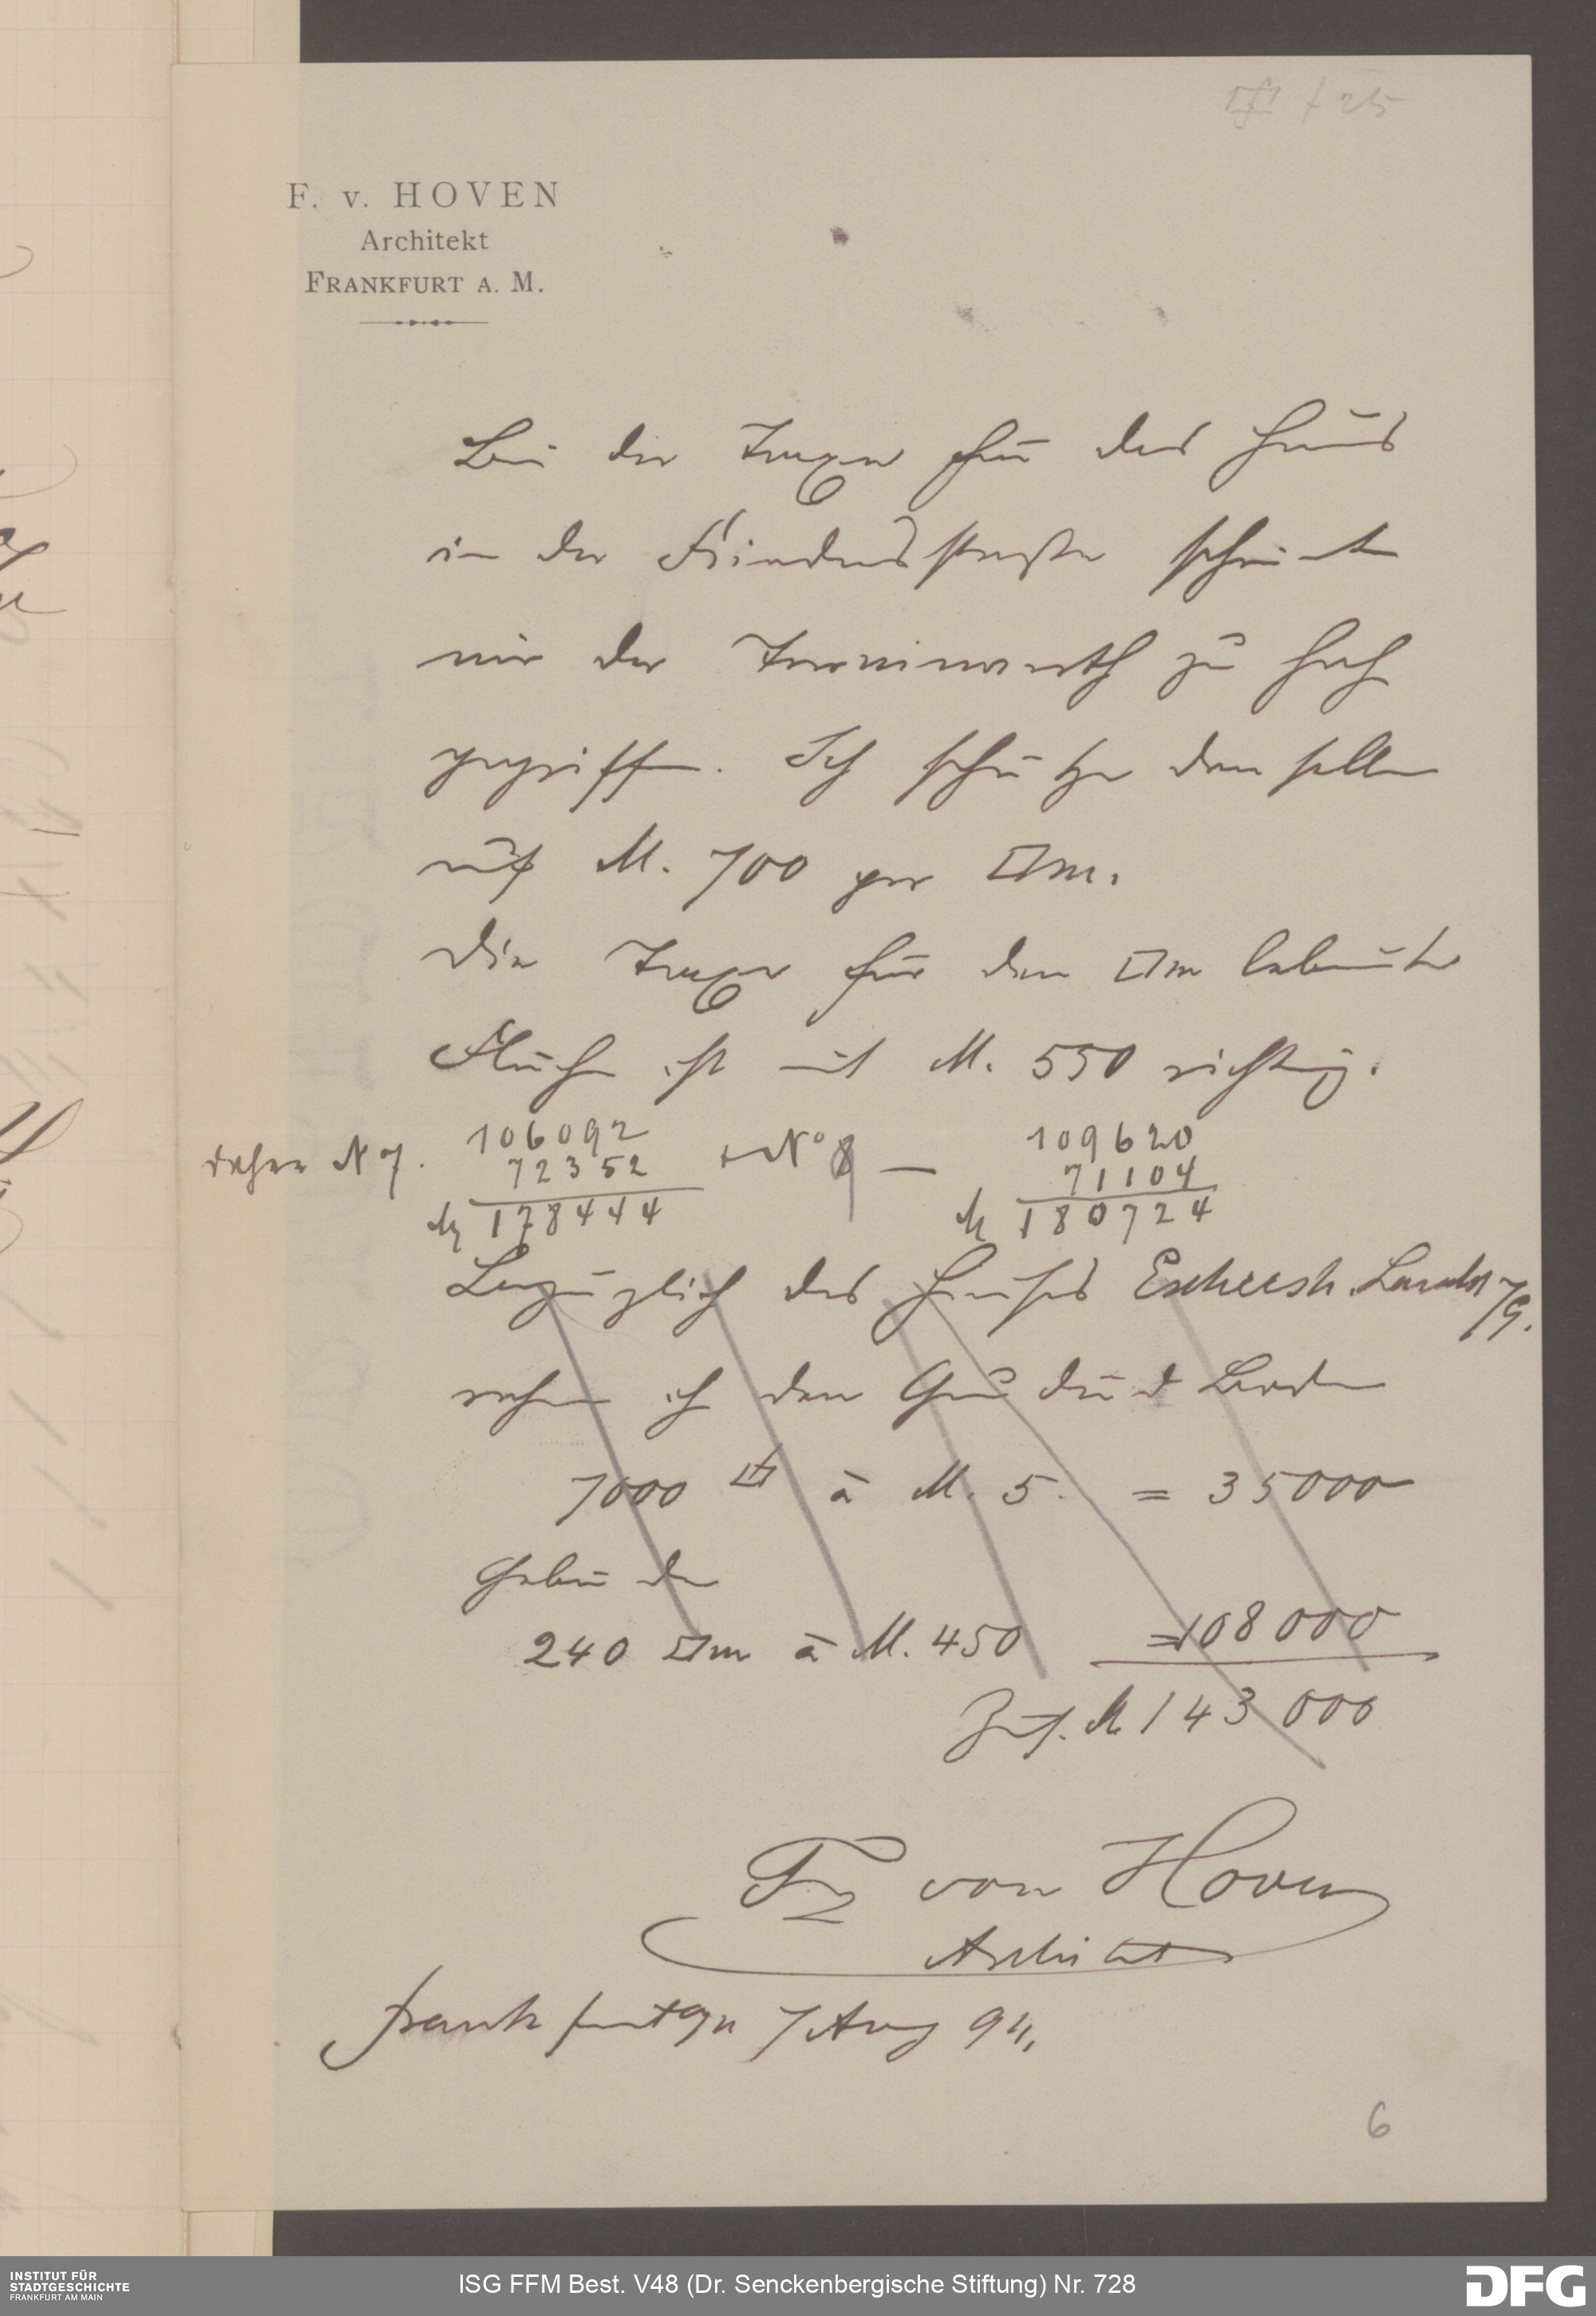 F. v. HOVEN
Architekt
FRANKFURT A. M.
Bei der Taxe für das Haus
in der Friedensstraße scheint
mir der Terrainwerth zu hoch
gegriffen. Ich schätze denselben
auf M. 700 per □m.
Die Taxe für den □m bebaute
Fläche ist mit M. 550 richtig.
daher N 7. 106092 + N° 9 — 109620
72352 71104
M 178444 M 180724
Bezüglich des Hauses Eschersh. Landst 79.
nehme ich den Grund und Boden
7000 □' à M. 5. = 35000
Gebäude
240 □m à M. 450 = 108000
Zus. M 143000
Fz von Hoven
Architekt
Frankfurt a/M 7 Aug 94.
6
INSTITUT FÜR
STADTGESCHICHTE
FRANKFURT AM MAIN
ISG FFM Best. V48 (Dr. Senckenbergische Stiftung) Nr. 728
DFG